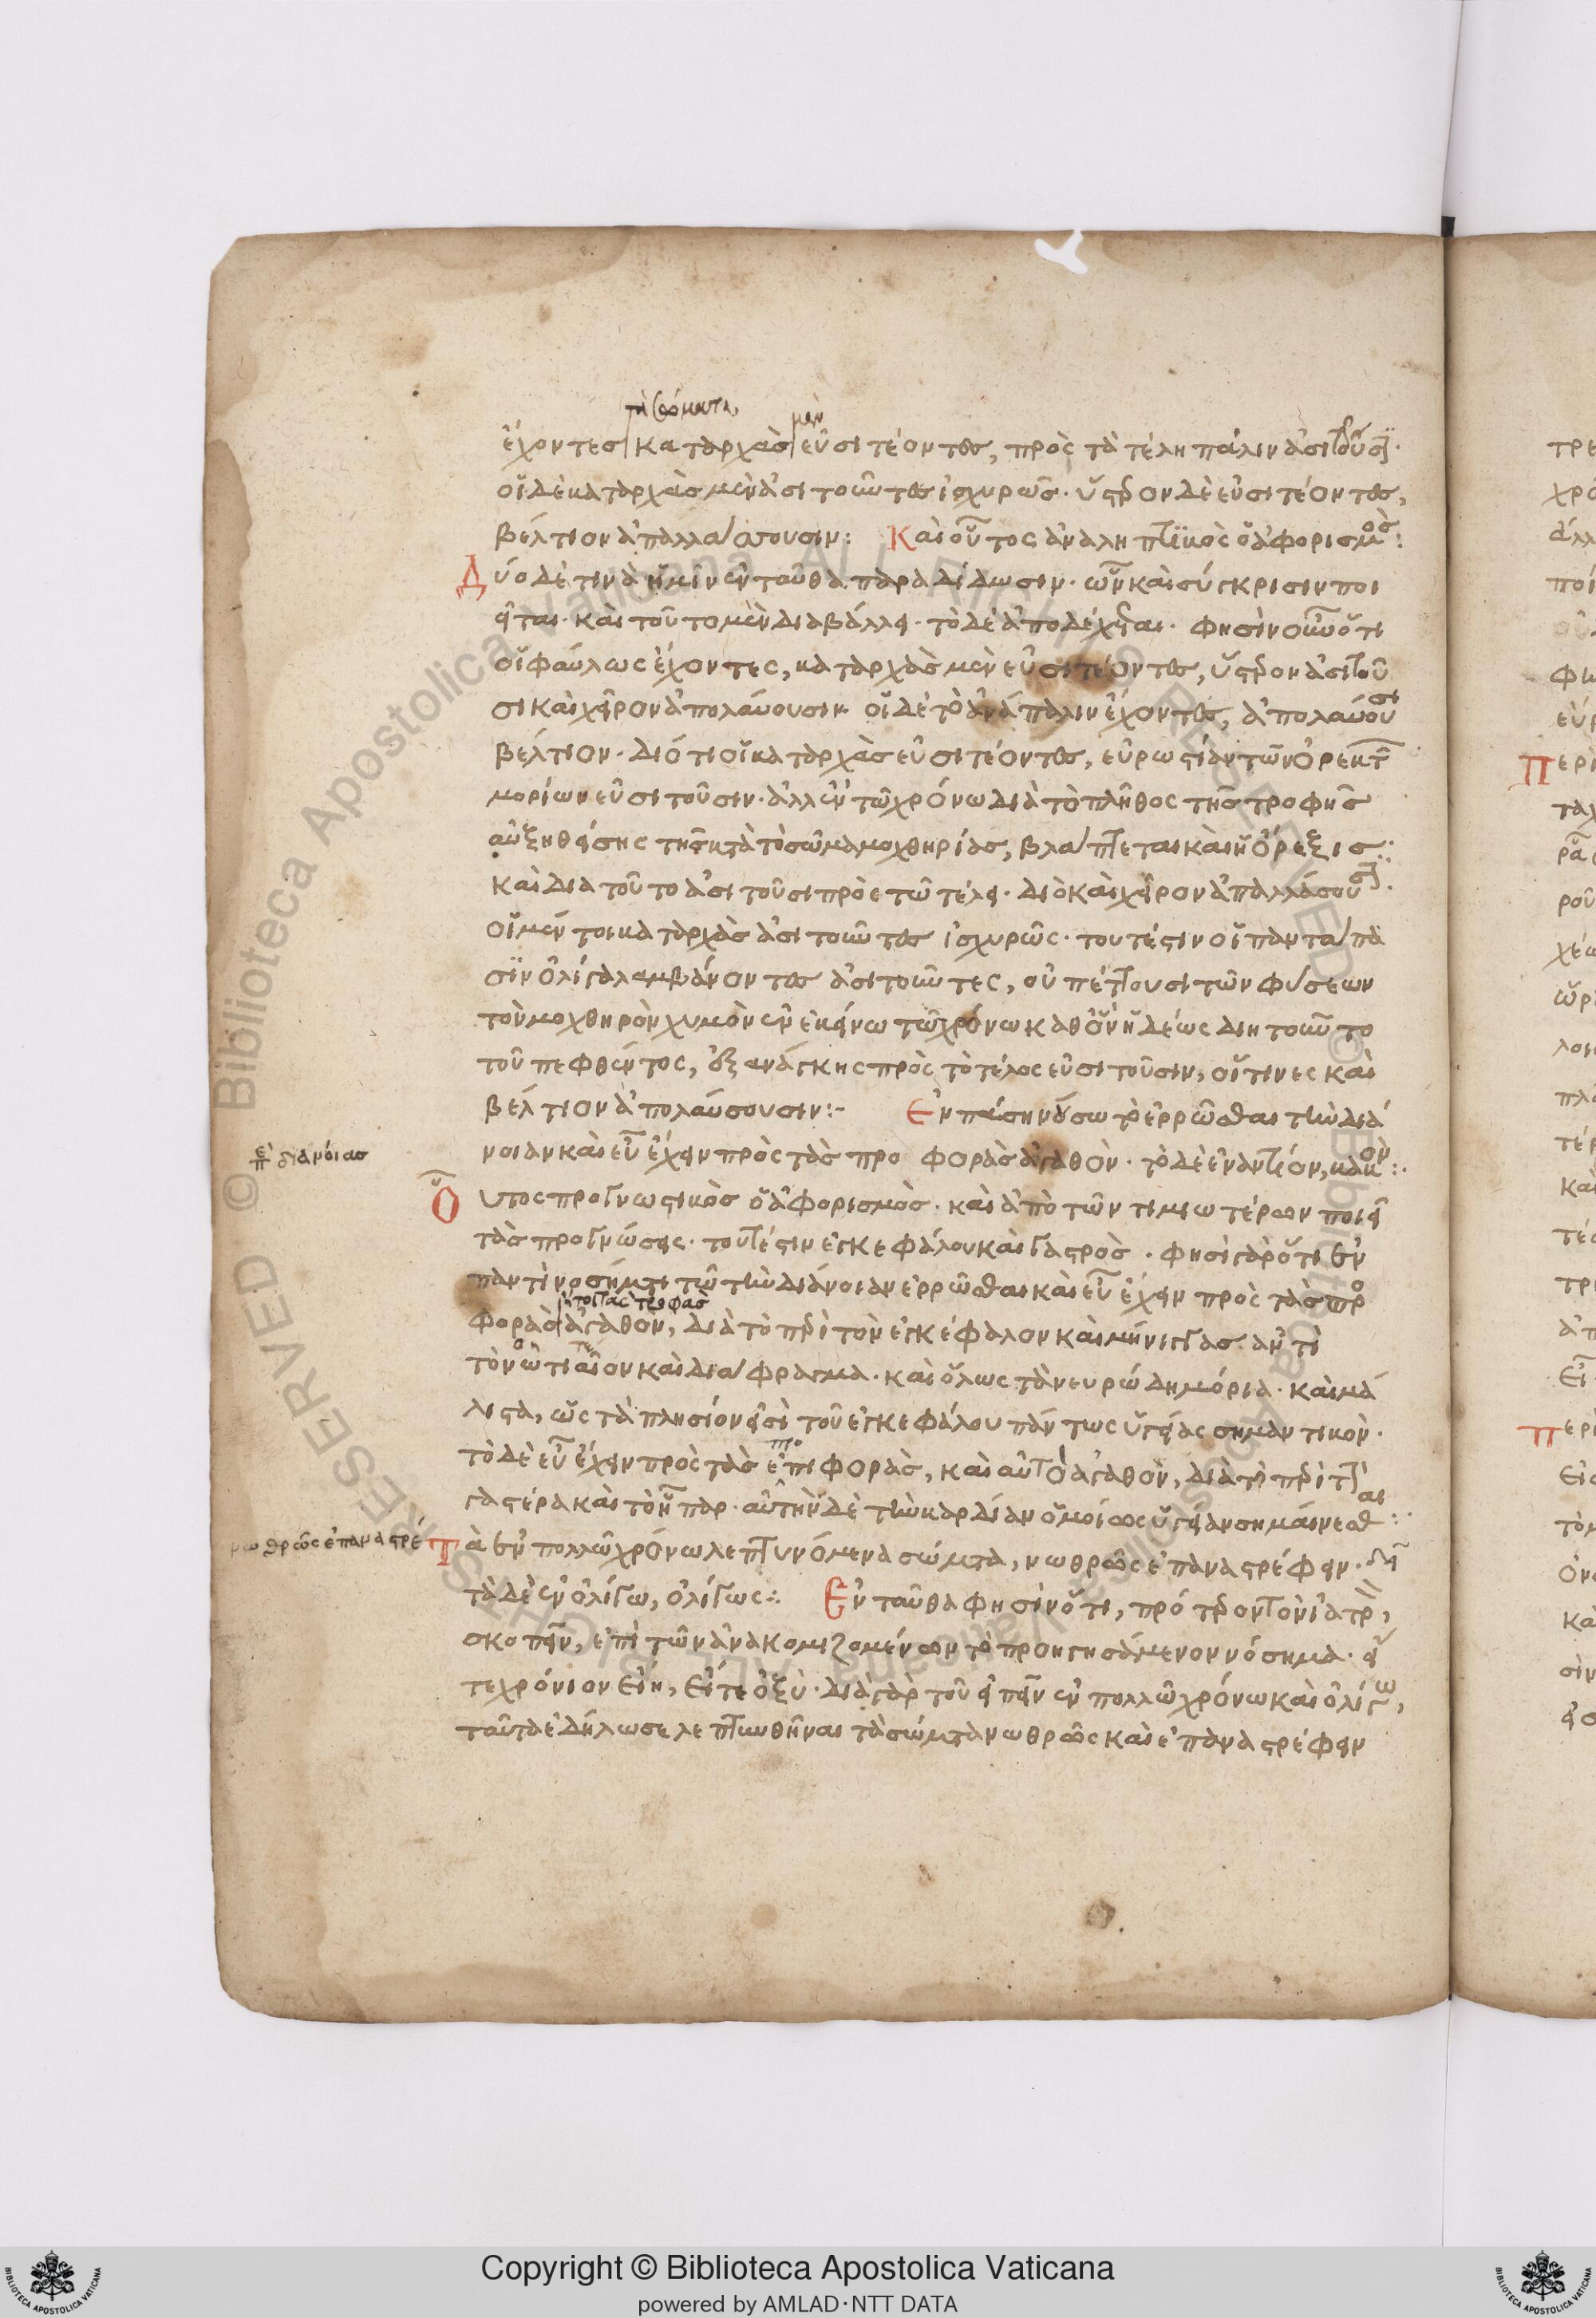 τὰ σώματα μὲν
ἔχοντες κατ' αρχὰς εὐσιτέοντες, πρὸς τὰ τέλη πάλιν ἀσιτοῦσι·
οἱ δὲ κατ' αρχὰς μὲν ἀσιτοῦντες ἰσχυρῶς· ὕστερον δὲ εὐσιτέοντες,
βέλτιον ἀπαλλάσσουσιν: Καὶ οὗτος ἀναληπτικὸς ὁ ἀφορισμος:
Δύο δὲ τινὰ ἡμῖν ἐνταῦθα παραδίδωσιν· ὧν καὶ σύγκρισιν ποι
εῖται· καὶ τοῦτο μὲν διαβάλλει· τὸ δὲ ἀποδέχεται· φησὶν οὖν ὅτι
οἱ φαύλως ἔχοντες, κατ' αρχὰς μὲν εὐσιτέοντες, ὕστερον ἀσιτοῦ
σι καὶ χεῖρον ἀπολαύουσιν· οἱ δὲ τὸ ἀνάπαλιν ἔχοντες, ἀπολαύουσι
βέλτιον· διότι οἱ κατ' αρχὰς εὐσιτέοντες, εὐρωστίαν τῶν ὀρεκτ
μορίων εὐσιτοῦσιν· ἀλλ' ἐν τῶ χρόνω διὰ τὸ πλῆθος τῆς τροφῆς
αὐξηθείσης τῆς κατὰ τὸ σῶμα μοχθηρίας, βλάπτεται καὶ ἡ ὄρεξις:
καὶ διὰ τοῦτο ἀσιτοῦσι πρὸς τῶ τέλει· διὸ καὶ χεῖρον ἀπαλλάσουσι·
οἱ μέν τοι κατ' αρχὰς ἀσιτοῦντες ἰσχυρῶς· τουτέστιν οἱ πανταπα
σιν ὀλίγα λαμβάνοντες ἀσιτοῦντες, οὐ πέττουσι τῶν φύσεων
τὸν μοχθηρὸν χυμὸν ἐν ἐκείνω τῶ χρόνω καθ' ὃν ἡδέως διητοῦντο
τοῦ πεφθέντος, ἐξ ανάγκης πρὸς τὸ τέλος εὐσιτοῦσιν, οἵτινες καὶ
βέλτιον ἀπολαύσουσιν:- Εν πάση νούσω τὸ ἐρρῶσθαι τὴν διά
νοιαν καὶ εὖ ἔχειν πρὸς τὰς προ φορὰς ἀγαθὸν· τὸ δὲ ἐναντίον, κακὸν:·
διανόιας
Οὗτος προγνωστικὸς ὁ ἀφορισμὸς· καὶ ἀπὸ τῶν τιμιωτέρων ποιεῖ
τὰς προγνώσεις· τουτέστιν ἐγκεφάλου καὶ γαστρὸς· φησὶ γὰρ ὅτι ἐν
παντὶ νοσήματι τῶ τὴν διάνοιαν ἐρρῶσθαι καὶ εὖ ἔχειν πρὸς τὰς προ
ἤτοι τὰς τροφὰς
φορὰς ἀγαθὸν, διὰ τὸ περὶ τὸν ἐγκέφαλον καὶ μήνιγγας αὐτὶ
τὸν νωτιαῖον καὶ διάφραγμα· καὶ ὅλως τὰ νευρώδη μόρια· καὶ μά
λιστα, ὡς τὰ πλησίον εἰσὶ τοῦ ἐγκεφάλου πάντως ὑγείας σημαντικὸν·
προ
τὸ δὲ εὖ ἔχειν πρὸς τὰς ἐπιφορὰς, καὶ αὐτὸ ἀγαθὸν, διὰ τὸ περὶ τ
γαστέρα καὶ τὸ ἧπαρ· αὐτὴν δὲ τὴν καρδίαν ὁμοίως ὑγείαν σημαίνεσθαι:·
νωθρῶς ἐπαναστρέ
Τὰ ἐν πολλῶ χρόνω λεπτυνόμενα σώματα, νωθρῶς ἐπαναστρέφειν·
τὰ δὲ ἐν ὀλίγω, ὀλίγως:· Ενταῦθα φησὶν ὅτι, πρότερον τὸν ἰατρὸν,
σκοπεῖν, ἐπὶ τῶν ἀνακομιζομένων τὸ προηγησάμενον νόσημα· εἴ
τε χρόνιον εἴη, εἴτε ὀξὺ· διὰ γὰρ τοῦ εἰπεῖν ἐν πολλῶ χρόνω καὶ ὀλίγω,
ταῦτα ἐδήλωσε λεπτυνθῆναι τὰ σώματα νωθρῶς καὶ ἐπαναστρέφειν
Copyright © Biblioteca Apostolica Vaticana
powered by AMLAD·NTT DATA